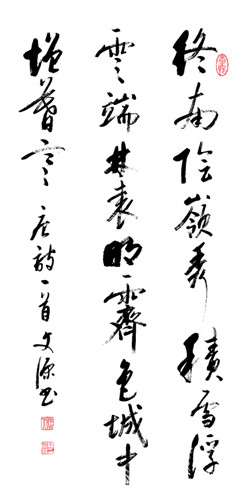 終南陰嶺秀積雪浮
雲端林表明霽色城中
增暮寒唐詩一首文源书